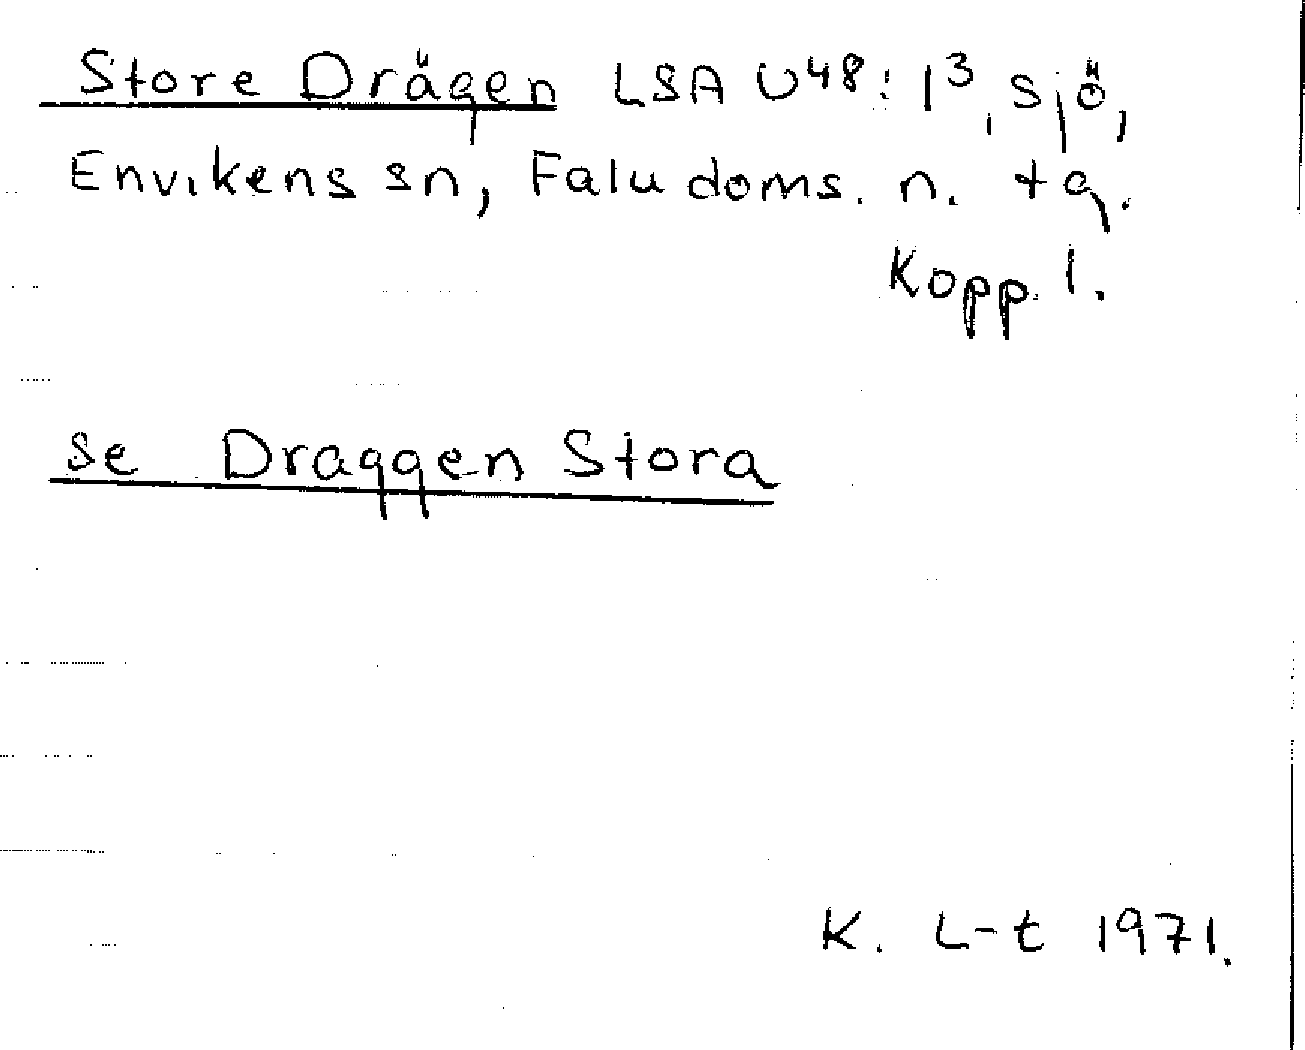 Store Drägen LSA U48: 1³, sjö,
Envikens sn, Falu doms. n. tg.
Kopp. l.
se Draggen Stora
K. L-t 1971.